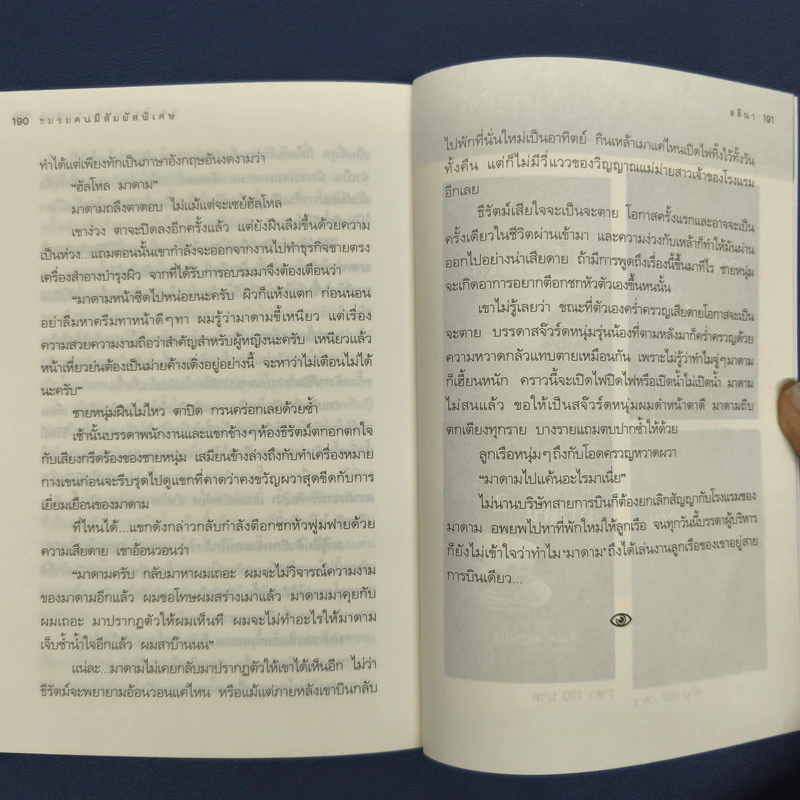 190 ชมรมคนมีสัมผัสพิเศษ
ทำได้แต่เพียงทักเป็นภาษาอังกฤษอันงดงามว่า
“ฮัลโหล มาดาม”
มาดามถลึงตาตอบ ไม่แม้แต่จะเซย์ฮัลโหล
เขาง่วง ตาจะปิดลงอีกครั้งแล้ว แต่ยังฝืนลืมขึ้นด้วยความ
เป็นห่วง...แถมตอนนั้นเขากำลังจะออกจากงานไปทำธุรกิจขายตรง
เครื่องสำอางบำรุงผิว จากที่ได้รับการอบรมมาจึงต้องเตือนว่า
“มาดามหน้าซีดไปหน่อยนะครับ ผิวก็แห้งแตก ก่อนนอน
อย่าลืมหาครีมทาหน้าดีๆทา ผมรู้ว่ามาดามขี้เหนียว แต่เรื่อง
ความสวยความงามถือว่าสำคัญสำหรับผู้หญิงนะครับ เหนียวแล้ว
หน้าเหี่ยวย่นต้องเป็นม่ายค้างเติ่งอยู่อย่างนี้ จะหาว่าไม่เตือนไม่ได้
นะครับ”
ชายหนุ่มฝืนไม่ไหว ตาปิด กรนคร่อกเลยด้วยซ้ำ
เช้านั้นบรรดาพนักงานและแขกข้างๆห้องธีรัตม์ตกอกตกใจ
กับเสียงกรีดร้องของชายหนุ่ม เสมียนข้างล่างถึงกับทำเครื่องหมาย
กางเขนก่อนจะรีบรุดไปดูแขกที่คาดว่าคงขวัญผวาสุดขีดกับการ
เยี่ยมเยือนของมาดาม
ที่ไหนได้...แขกดังกล่าวกลับกำลังตีอกชกหัวฟูมฟายด้วย
ความเสียดาย เขาอ้อนวอนว่า
“มาดามครับ กลับมาหาผมเถอะ ผมจะไม่วิจารณ์ความงาม
ของมาดามอีกแล้ว ผมขอโทษผมสร่างเมาแล้ว มาดามมาคุยกับ
ผมเถอะ มาปรากฏตัวให้ผมเห็นที ผมจะไม่ทำอะไรให้มาดาม
เจ็บช้ำน้ำใจอีกแล้ว ผมสาบ๊านนน”
แน่ละ...มาดามไม่เคยกลับมาปรากฏตัวให้เขาได้เห็นอีก ไม่ว่า
ธีรัตม์จะพยายามอ้อนวอนแค่ไหน หรือแม้แต่ภายหลังเขาบินกลับ
191
ไปพักที่นั่นใหม่เป็นอาทิตย์ กินเหล้าเมาแค่ไหนเปิดไฟทิ้งไว้ทั้งวัน
ทั้งคืน แต่ก็ไม่มีวี่แววของวิญญาณแม่ม่ายสาวเจ้าของโรงแรม
อีกเลย
ธีรัตม์เสียใจจะเป็นจะตาย โอกาสครั้งแรกและอาจจะเป็น
ครั้งเดียวในชีวิตผ่านเข้ามา และความง่วงกับเหล้าก็ทำให้มันผ่าน
ออกไปอย่างน่าเสียดาย ถ้ามีการพูดถึงเรื่องนี้ขึ้นมาทีไร ชายหนุ่ม
จะเกิดอาการอยากตีอกชกหัวตัวเองขึ้นหนนั้น
เขาไม่รู้เลยว่า ขณะที่ตัวเองคร่ำครวญเสียดายโอกาสจะเป็น
จะตาย บรรดาสจ๊วร์ดหนุ่มรุ่นน้องที่ตามหลังมาก็คร่ำครวญด้วย
ความหวาดกลัวแทบตายเหมือนกัน เพราะไม่รู้ว่าทำไมจู่ๆมาดาม
ก็เฮี้ยนหนัก คราวนี้จะเปิดไฟปิดไฟหรือเปิดน้ำไม่เปิดน้ำ มาดาม
ไม่สนแล้ว ขอให้เป็นสจ๊วร์ดหนุ่มผมดำหน้าตาดี มาดามถีบ
ตกเตียงทุกราย บางรายแถมตบปากซ้ำให้ด้วย
ลูกเรือหนุ่มๆถึงกับโอดครวญหวาดผวา
“มาดามไปแค้นอะไรมาเนี่ย”
ไม่นานบริษัทสายการบินก็ต้องยกเลิกสัญญากับโรงแรมของ
มาดาม อพยพไปหาที่พักใหม่ให้ลูกเรือ จนทุกวันนี้บรรดาผู้บริหาร
ก็ยังไม่เข้าใจว่าทำไม ‘มาดาม’ ถึงได้เล่นงานลูกเรือของเขาอยู่สาย
การบินเดียว...